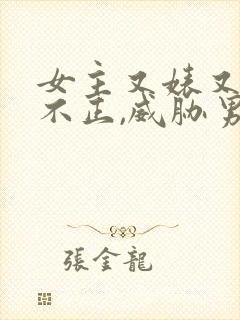 女主又婊又
不正,威胁男
張金龍